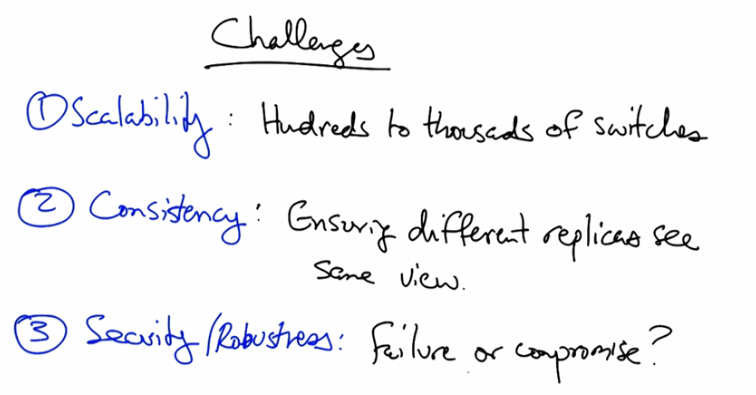 Challenges
① Scalability: Hundreds to thousads of switches
② Consistency: Ensuring different replicas see
same view.
③ Security/Robustness: Failure or compromise?